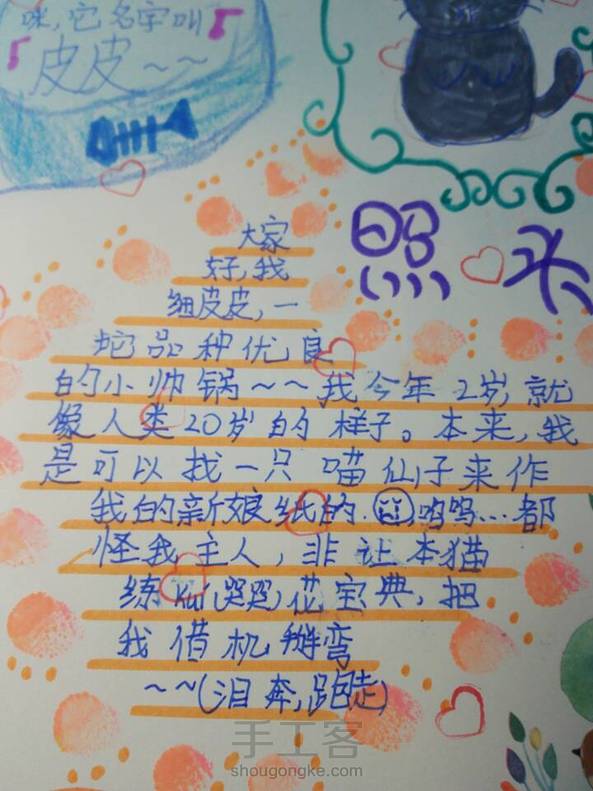 咪,它名字叫
「皮皮~~
照来
大家
好,我
细皮皮,一
坨品种优良
的小帅锅~~我今年2岁,就
像人类20岁的样子。本来,我
是可以找一只喵仙子来作
我的新娘纸的,呜呜…都
怪我主人,非让本猫
练kui(哭哭)花宝典,把
我借机掰弯
~~(泪奔,跑走)
手工客
shougongke.com